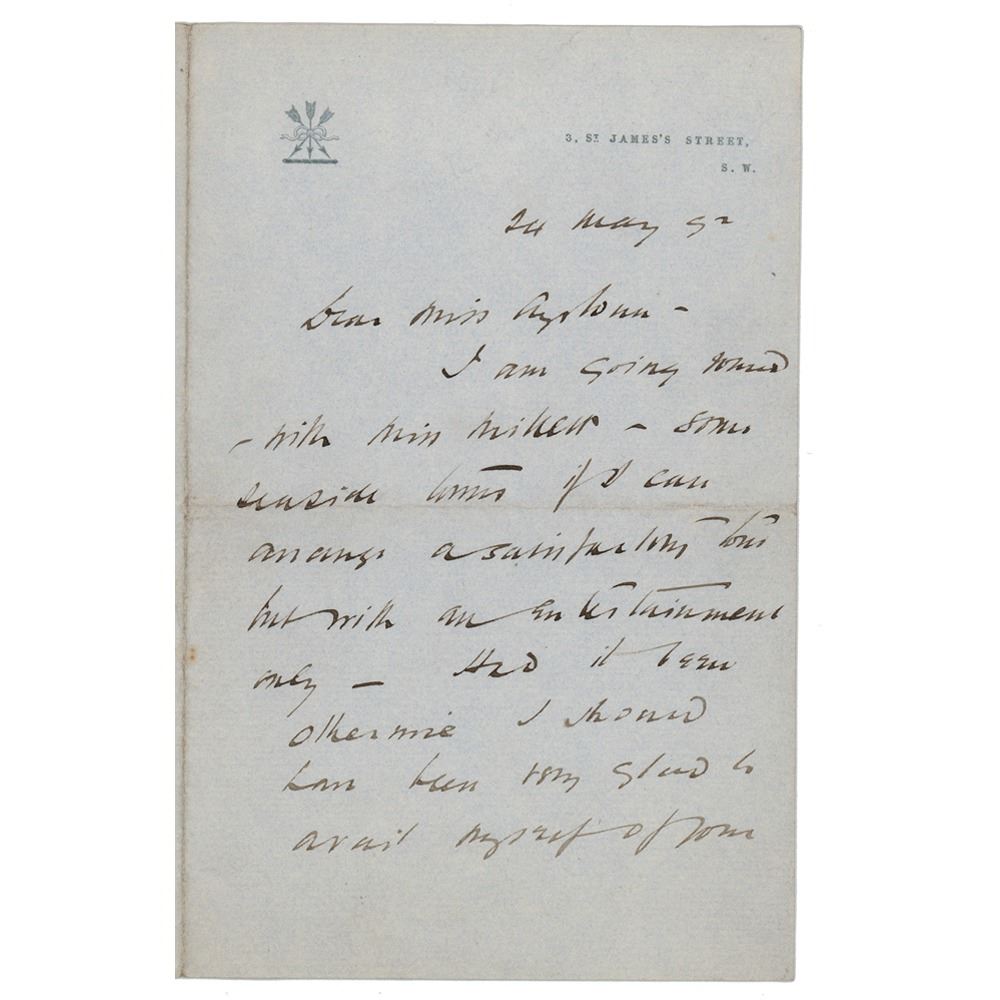 3, ST JAMES'S STREET,
S. W.
24 May 92
Dear Miss Aylown -
I am going round
- with Miss Millett - some
seaside towns if I can
arrange a satisfactory tour
but with an entertainment
only - Had it been
otherwise I should
have been very glad to
avail myself of your